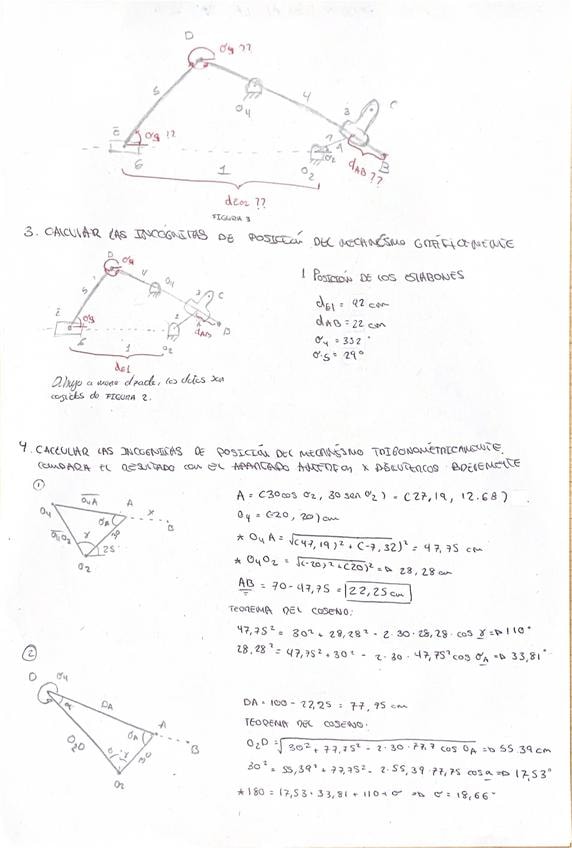 D
σ4 ??
5
O4
4
3
C
E
σ5 ??
6
1
2
A
O2
dAB ??
B
dEO2 ??
FIGURA 3
3. CALCULAR LAS INCÓGNITAS DE POSICIÓN DEL MECANISMO GRÁFICAMENTE
D
σ4
4
O4
5
3
C
E
σ5
2
B
6
1
O2
dAB
dE1
Dibujo a mano alzada, los datos son
cogidos de FIGURA 2.
1 POSICIÓN DE LOS ESLABONES
dE1 = 92 cm
dAB = 22 cm
σ4 = 332°
σ5 = 29°
4. CALCULAR LAS INCÓGNITAS DE POSICIÓN DEL MECANISMO TRIGONOMÉTRICAMENTE.
COMPARA EL RESULTADO CON EL APARTADO ANTERIOR
BREVEMENTE
①
O4A
O4
A
x
B
σA
O4O2
γ
30
25
O2
A = (30 cos σ2, 30 sen σ2) = (27,19, 12.68)
O4 = (-20, 20) cm
* O4A = √(47,19)² + (-7,32)² = 47,75 cm
* O4O2 = √(-20)² + (20)² => 28,28 cm
AB = 70 - 47,75 = 22,25 cm
TEOREMA DEL COSENO:
47,75² = 30² + 28,28² - 2·30·28,28·cos γ => 110°
28,28² = 47,75² + 30² - 2·30·47,75² cos σA => 33,81°
②
D
σ4
DA
α
A
σA
B
O2D
σ
γ
30
O2
DA = 100 - 22,25 = 77,75 cm
TEOREMA DEL COSENO:
O2D = √30² + 77,75² - 2·30·77,7 cos σA => 55.39 cm
30² = 55,39² + 77,75² - 2·55,39·77,75 cos α => 17,53°
* 180 = 17,53 + 33,81 + 110 + σ => σ = 18,66°